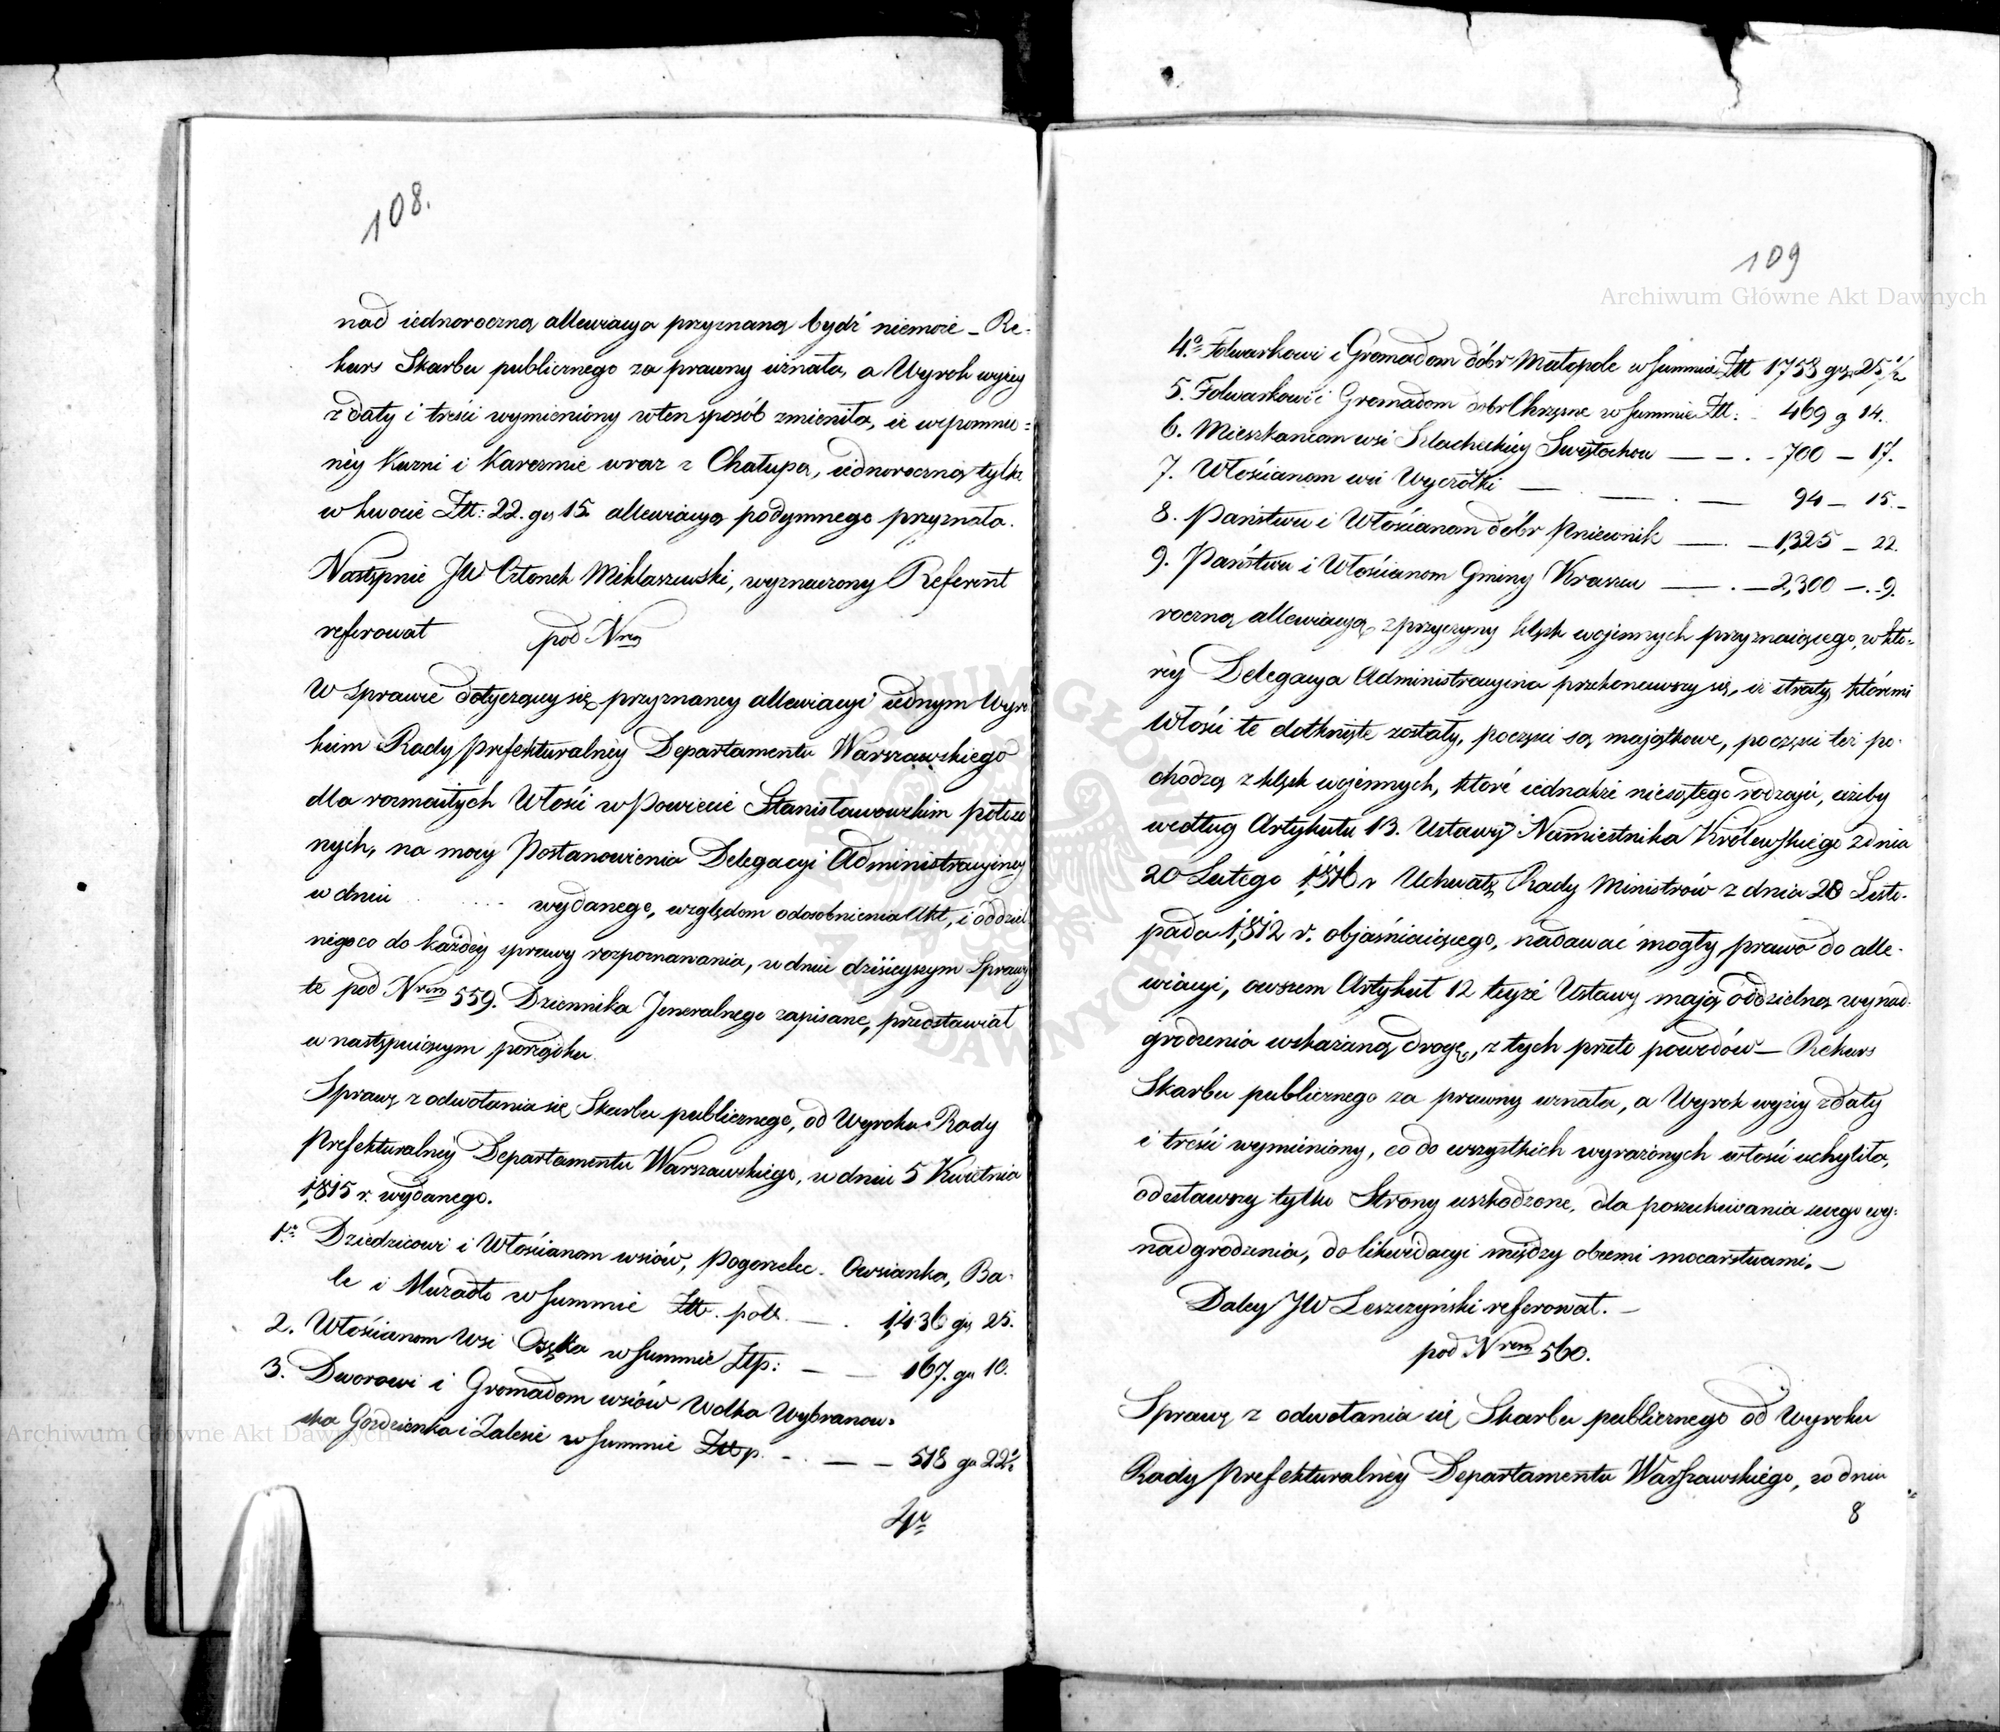 108.
nad iednoroczną allewiacya przyznaną bydź niemoże – Re-
kurs Skarbu publicznego za prawny uznała, a Wyrok wyżey
z daty i treści wymieniony w ten sposób zmieniła, iż wspomnio=
néy Kuzni i Karczmie wraz z Chałupą, iednoroczną tylko
w kwocie Złł: 22. gr 15. allewiacyą podymnego przyznała.
Następnie JW Członek Miklaszewski, wyznaczony Referent
referował pod Nrem
W sprawie dotyczącey się przyznaney allewiacyi iednym Wyro
kiem Rady Prefekturalnéy Departamentu Warszawskiego
dla rozmaitych Włości w Powiecie Stanisławowskim położo
nych, na mocy Postanowienia Delegacyi Administracyiney
w dniu . . . . . . wydanego, względem odosobnienia Akt, i oddziel
nego co do każdéy sprawy rozpoznawania, w dniu dzisieyszym Sprawy
te pod Nrem 559. Dziennika Jeneralnego zapisane, przedstawiał
w następuiącym porządku.
Sprawę z odwołania się Skarbu publicznego, od Wyroku Rady
Prefekturalnéy Departamentu Warszawskiego, w dniu 5 Kwietnia
1,815 r. wydanego.
1o Dziedzicowi i Włościanom wsiów, Pogorzelec – Owsianka, Ba-
le i Muradło w summie Złł. pols. — . 1,436 gr 25.
2. Włościanom Wsi Osęka w summie Złp: — — 167. gr 10.
3. Dworowi i Gromadom wsiów Wolka Wybranow-
ska Gozdzienka i Zalesie w summie Złłp. - . — – 518 gr 22 1/2
4o
109
4.o Folwarkowi i Gromadom dóbr Małopole w summie Złł 1758 gr. 25 1/2
5. Folwarkowi i Gromadom dobr Chrzęsne w summie Złł: - 469 g 14.
6. Mieszkańcom wsi Szlacheckiéy Swętochow — – . - 700 – 17.
7. Włościanom wsi Wyczółki — . — . — 94 – 15.-
8. Państwu i Włościanom dóbr Pniewnik — . – 1,325 – 22.
9. Państwu i Włościanom Gminy Kraszew — . – 2,300 –.-9.
roczną allewiacyą, z przyczyny klęsk wojennych przyznaiącego, w któ-
réy Delegacya Administracyina przekonawszy się, iż straty, któremi
Włości te dotknięte zostały, poczęści są majątkowe, poczęści też po-
chodzą z klęsk wojennych, które iednakże niesą tego rodzaju, iżeby
według Artykułu 13. Ustawy Namiestnika Królewskiego z dnia
20 Lutego 1,816 r Uchwałę Rady Ministrów z dnia 20 Listo-
pada 1,812 r. objaśniaiącego, nadawać mogły prawo do alle-
wiacyi, owszem Artykuł 12 teyże Ustawy mają oddzielną wynad-
grodzenia wskazaną drogę, z tych przeto powodów – Rekurs
Skarbu publicznego za prawny uznała, a Wyrok wyżey z daty
i treści wymieniony, co do wszystkich wyrażonych włości uchyliła,
odesławszy tylko Strony uszkodzone, dla poszukiwania swego wy-
nadgrodzenia, do likwidacyi między obcemi mocarstwami. –
Daley JW Leszczyński referował. –
pod Nrem 560.
Sprawę z odwołania się Skarbu publicznego od Wyroku
Rady Prefekturalnéy Departamentu Warszawskiego, w dniu
8
Archiwum Główne Akt Dawnych
Archiwum Główne Akt Dawnych
ARCHIWUM GŁÓWNE AKT DAWNYCH